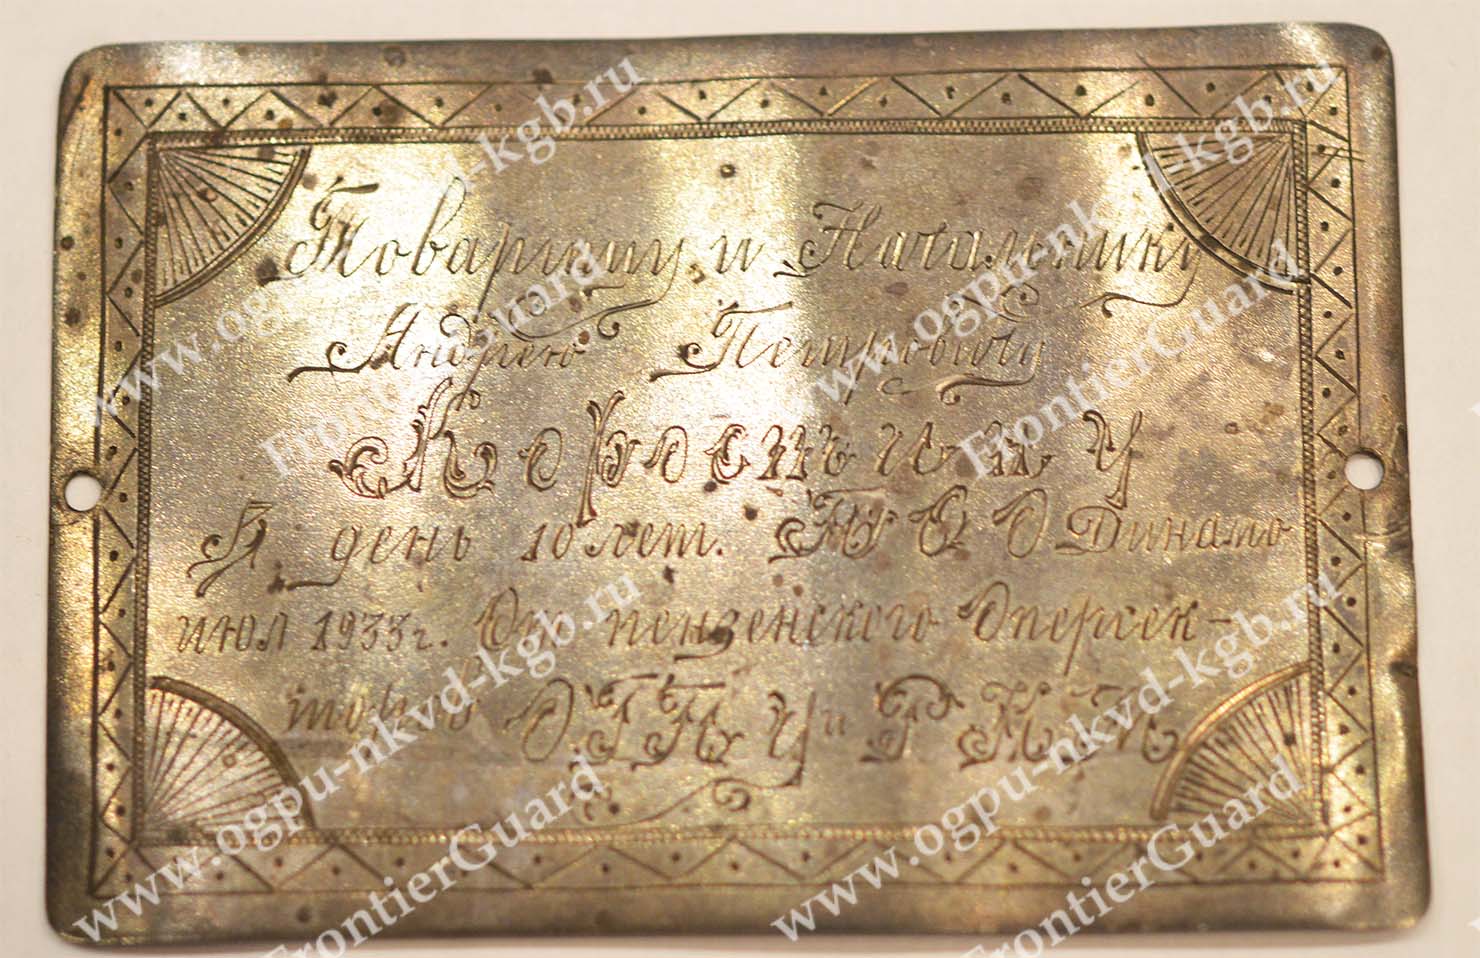 Товарищу и Начальнику
Андрею Петровичу
Коростину
В день 10 лет. П О О Динамо
июл 1933 г. От пензенского Оперсек-
тора О.Г.П.У и Р.К.М.
www.ogpu-nkvd-kgb.ru
FrontierGuard
www.ogpu-nkvd-kgb.ru
FrontierGuard
www.ogpu-nkvd-kgb.ru
FrontierGuard
www.ogpu-nkvd-kgb.ru
FrontierGuard